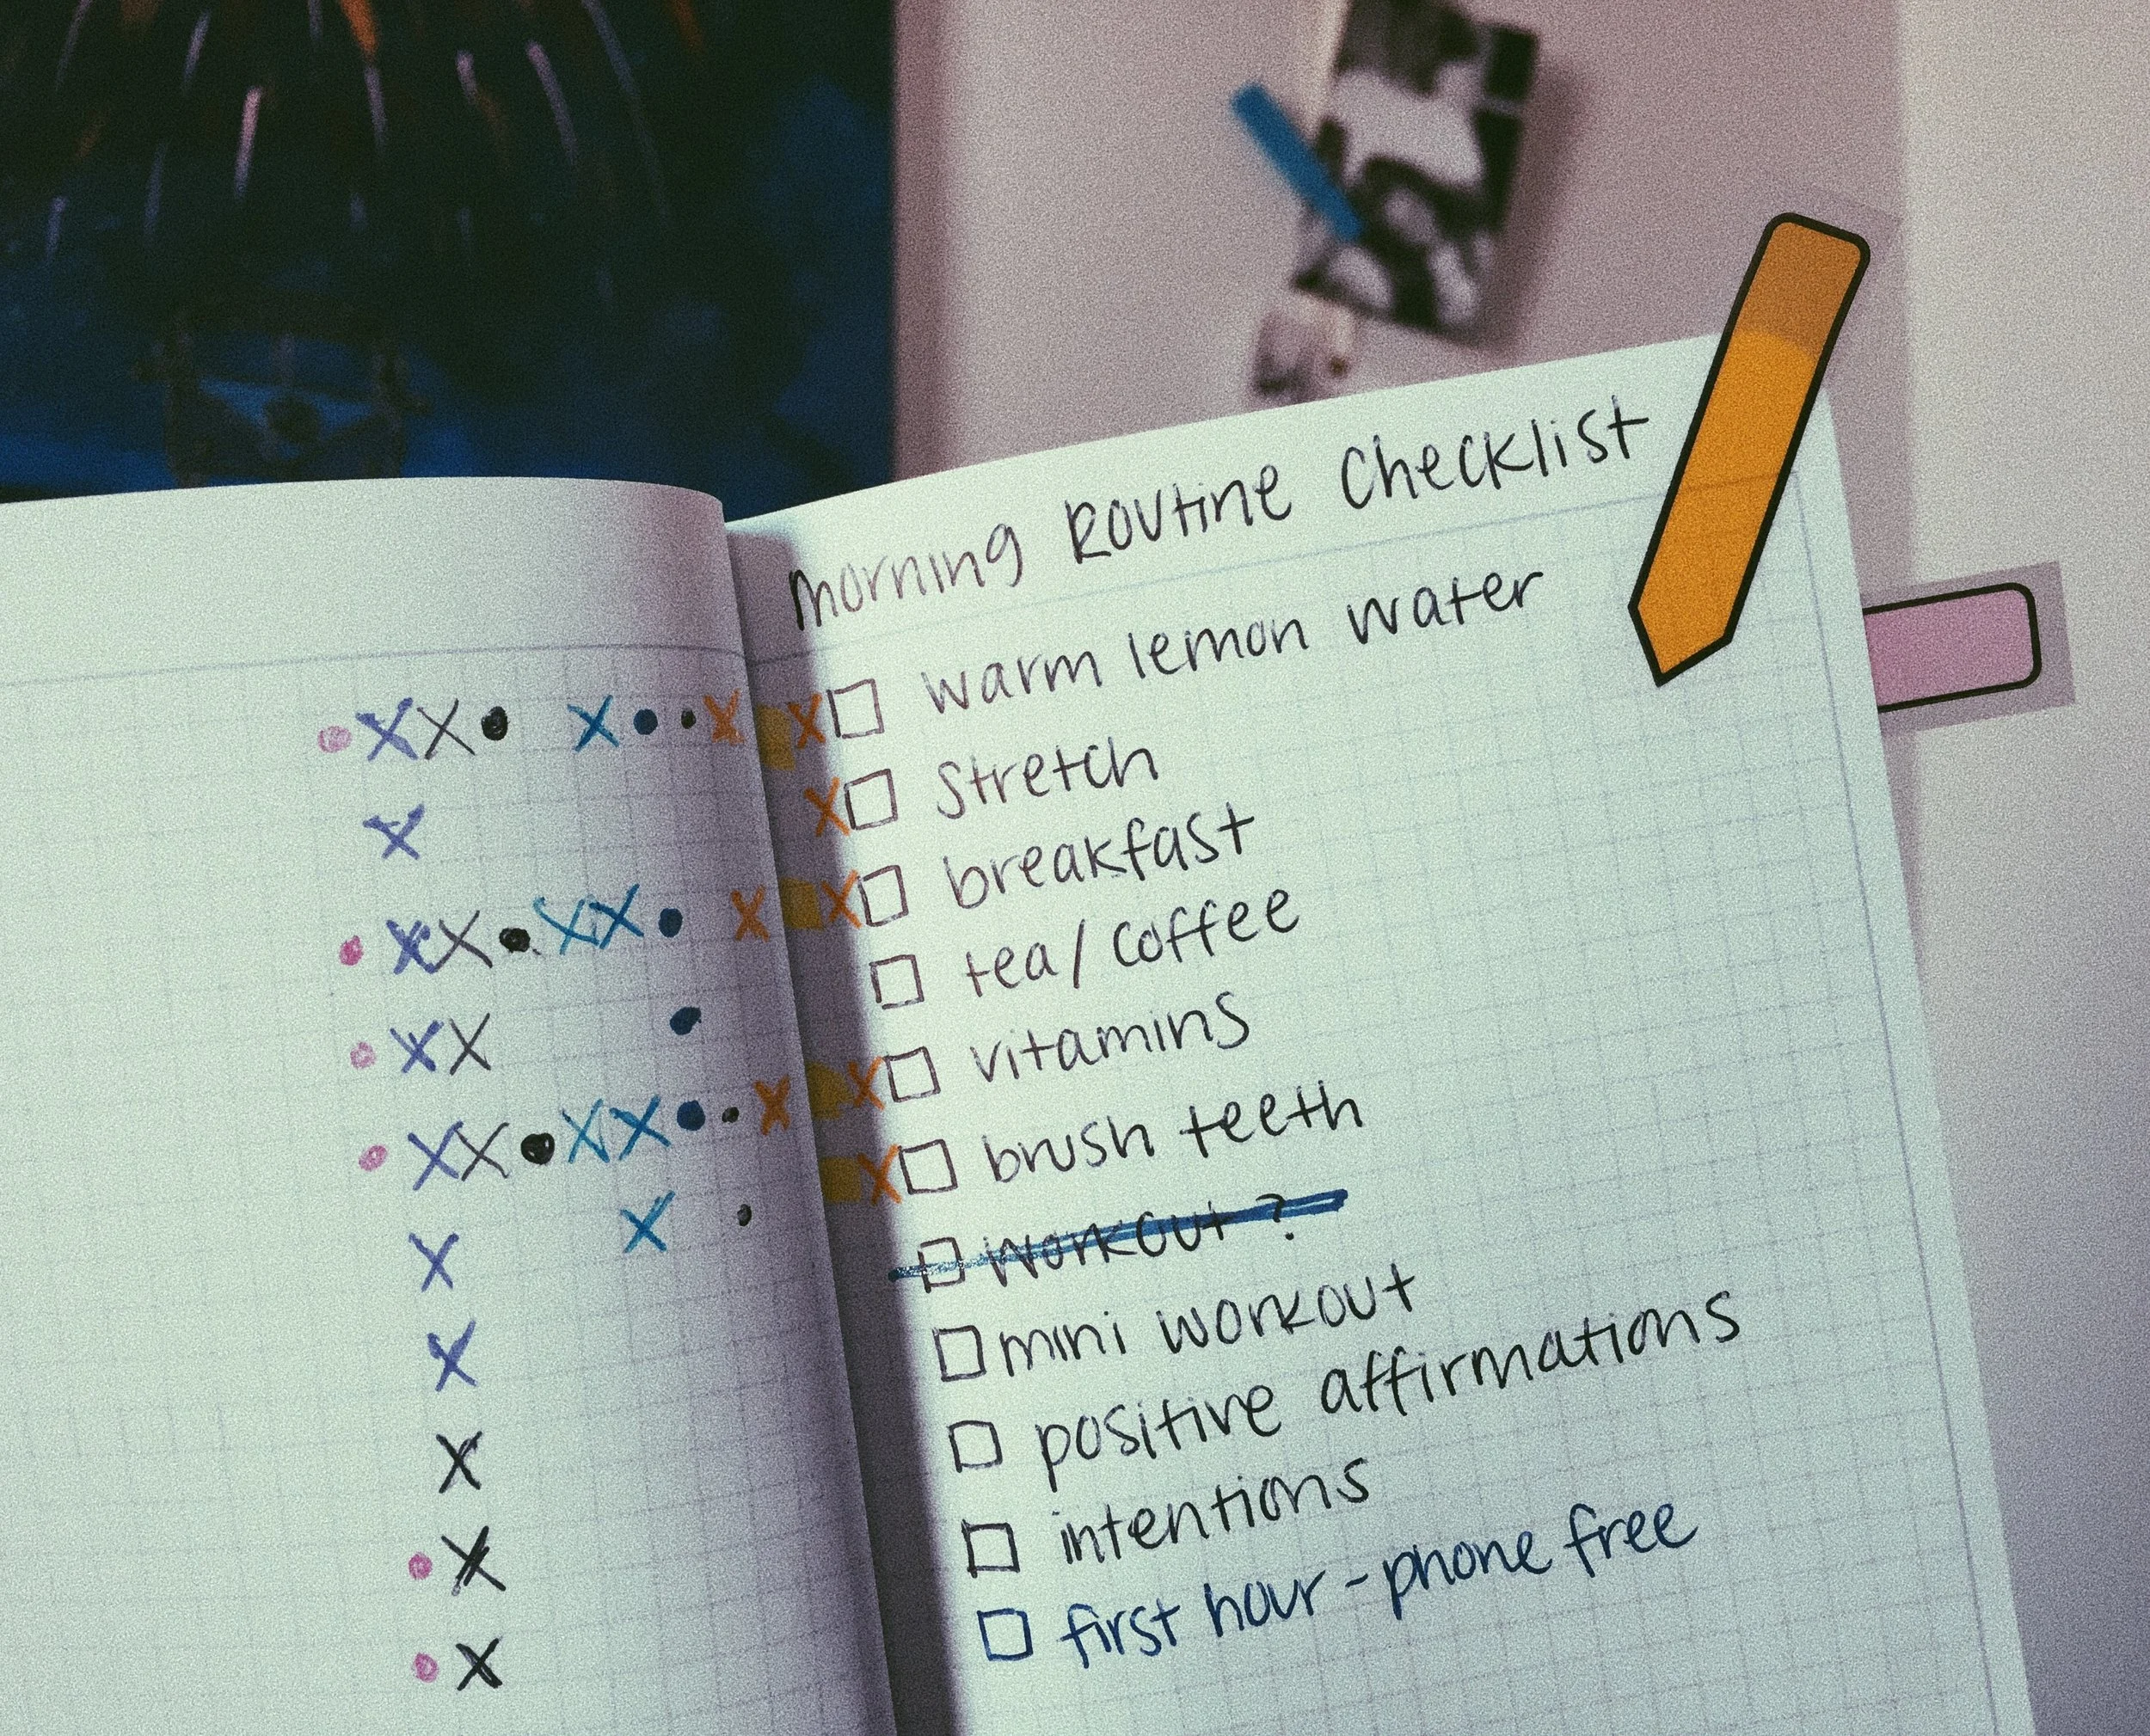 morning Routine Checklist
warm lemon water
Stretch
breakfast
tea/coffee
vitamins
brush teeth
workout?
mini workout
positive affirmations
intentions
first hour - phone free